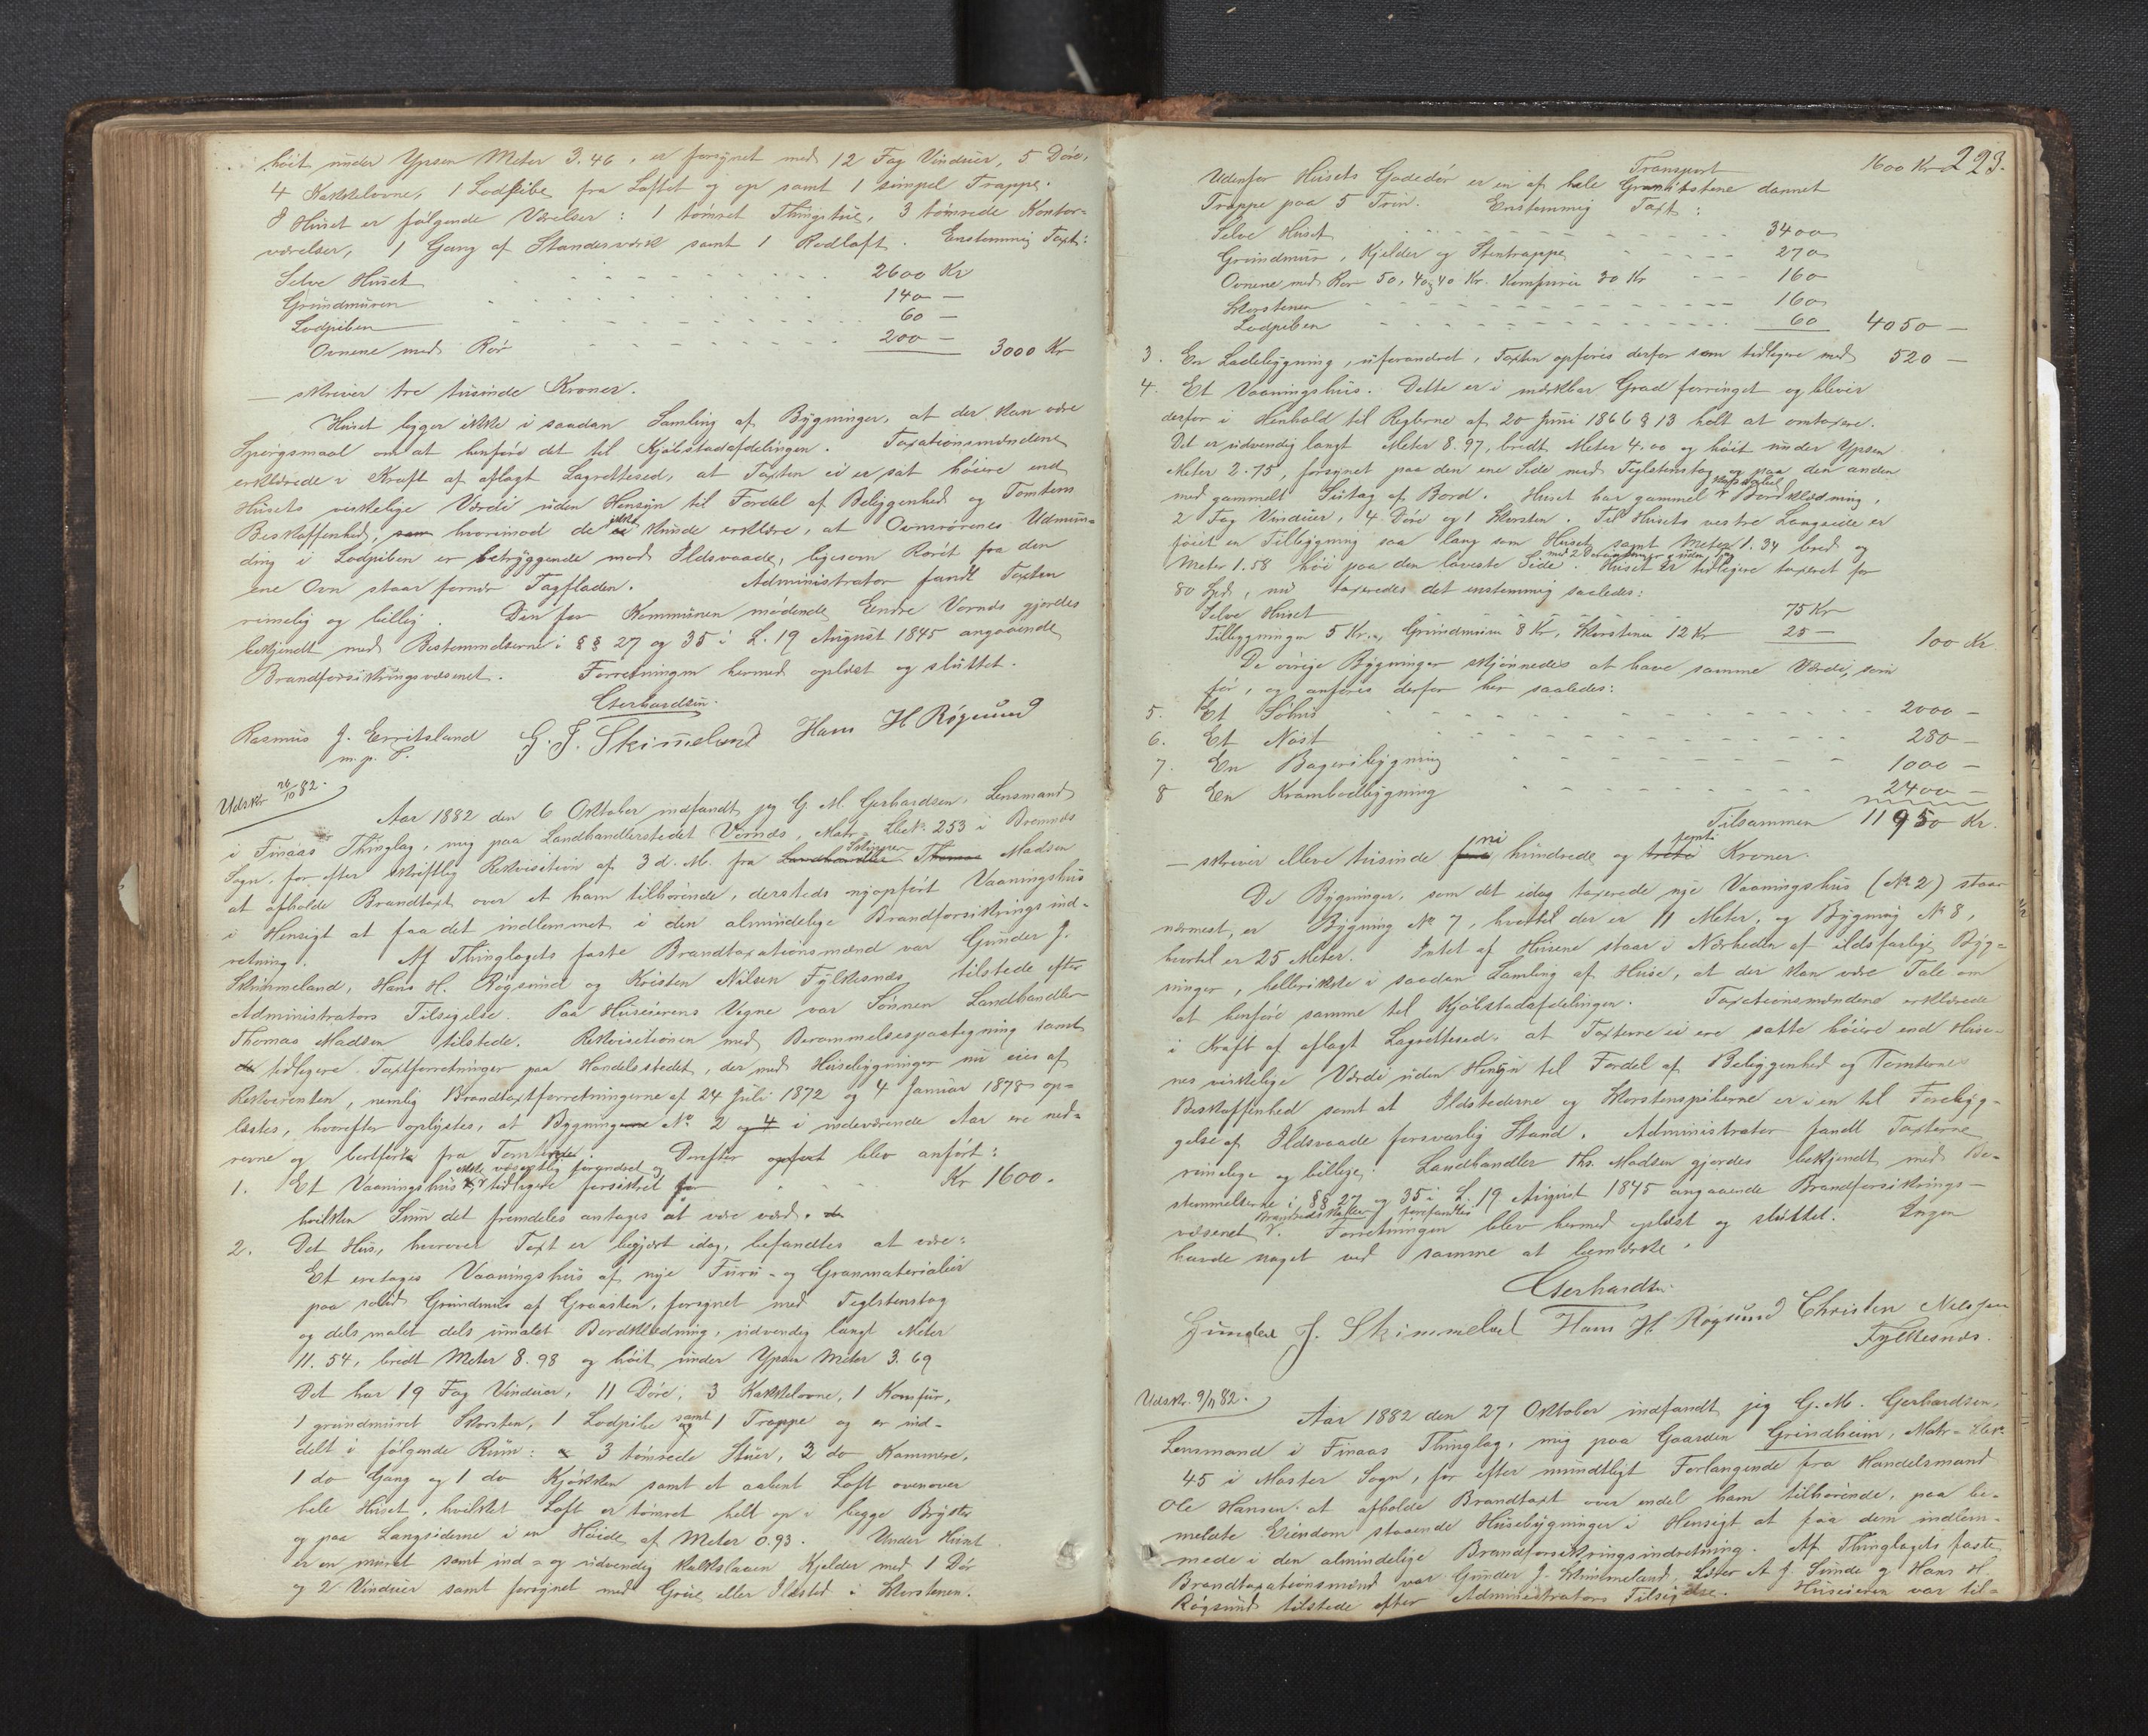 høit under Ypsen Meter 3.46, er forsynet med 12 Fag Vinduer, 5 Døre,
4 Kakkelovne, 1 Lodpibe fra Loftet og op samt 1 simpel Trappe.
I Huset er følgende Værelser: 1 tømret Thingstue, 3 tømrede Kontor-
værelser, 1 Gang af Standerværk samt 1 Rodloft. Enstemmig Taxt:
Selve Huset 2600 Kr
Grundmuren 140 —
Lodpiben 60 —
Ovnene med Rør 200 — 3000 Kr
— skriver tre tusinde Kroner.
Huset ligger ikke i saadan Samling af Bygninger, at der kan være
Spørgsmaal om at henføre det til Kjøbstadafdelingen. Taxationsmændene
erklærede i Kraft af aflagt Lagrettesed, at Taxten ei er sat høiere end
Husets virkelige Værdi uden Hensyn til Fordel af Beliggenhed og Tomtens
Beskaffenhed, som hvorimod de ikke kunde erklære, at Ovnsrørenes Udmun-
ding i Lodpiben er betryggende mod Ildsvaade, ligesom Røret fra den
ene Ovn staar fornær Tagfladen. Administrator fandt Taxten
rimelig og billig. Den for Kommunen mødende Endre Vornes gjordes
bekjendt med Bestemmelserne i §§ 27 og 35 i L. 19 August 1845 angaaende
Brandforsikringsvæsenet. Forretningen hermed oplæst og sluttet.
Gerhardsen.
Rasmus J. Erritsland G. J. Skimmeland Hans H Røgsund
m. p. P.
Udskr 26/10 82.
Aar 1882 den 6 Oktober indfandt jeg G. M. Gerhardsen, Lensmand
i Finaas Thinglag, mig paa Landhandlerstedet Vornes, Matr.-Løbe No 253 i Bremnes
Sogn, for efter skriftlig Rekvisition af 3 d. M. fra Landhandler Skipper Thomas Madsen
at afholde Brandtaxt over et ham tilhørende, dersteds nyopført Vaaningshus
i Hensigt at faa det indlemmet i den almindelige Brandforsikringsind-
retning. Af Thinglagets faste Brandtaxationsmænd var Gunder J.
Skimmeland, Hans H. Røgsund og Kristen Nilsen Fylkesnes tilstede efter
Administrators Tilsigelse. Paa Huseierens Vegne var Sønnen Landhandler
Thomas Madsen tilstede. Rekvisitionen med Berammelsespaategning samt
de tidligere Taxtforretninger paa Handelsstedet, der med Husebygninger nu eies af
Rekvirenten, nemlig Brandtaxtforretningerne af 24 Juli 1872 og 4 Januar 1878 op-
læstes, hvorefter oplystes, at Bygningerne No 2 og 4 i indeværende Aar ere ned-
revne og bortførte fra Tomterne. Derefter opført blev anført:
1. Et Vaaningshus, ikke væsentlig forandret og tidligere forsikret for Kr 1600.
hvilken Sum det fremdeles antages at være værd. de
2. Det Hus, hvorover Taxt er begjært idag, befandtes at være:
Et eretages Vaaningshus af nye Furu- og Granmaterialier
paa solid Grundmur af Graasten, forsynet med Teglstenstag
og dels malet dels umalet Bordklædning, udvendig langt Meter
11.54, bredt Meter 8.98 og høit under Ypsen Meter 3.69
Det har 19 Fag Vinduer, 11 Døre, 3 Kakkelovne, 1 Komfur,
1 grundmuret Skorsten, 1 Lodpibe samt 1 Trappe og er ind-
delt i følgende Rum: 3 tømrede Stuer, 2 do Kammere,
1 do Gang og 1 do Kjøkken samt et aabent Loft ovenover
hele Huset, hvilket Loft er tømret helt op i begge Bryster
og paa Langsiderne i en Høide af Meter 0.93. Under Huset
er en muret samt ind- og udvendig kalkslagen Kjelder med 1 Dør
og 2 Vinduer samt forsynet med Grue eller Ildsted i Skorstenen.
293.
Transport 1600 Kr
Udenfor Husets Gadedør er en af hele Granitstene dannet
Trappe paa 5 Trin. Enstemmig Taxt:
Selve Huset 3400
Grundmur, Kjelder og Stentrappe 270
Ovnene med Rør 50, 40 og 40 Kr. Komfuren 30 Kr 160
Skorstenen 160
Lodpiben 60 4050 —
3. En Ladebygning, uforandret, Taxten opføres derfor som tidligere med 520 —
4. Et Vaaningshus. Dette er i mærkbar Grad forringet og bliver
derfor i Henhold til Reglerne af 20 Juni 1866 § 13 holt at omtaxere.
Det er udvendig langt Meter 8.97, bredt Meter 4,00 og høit under Ypsen
Meter 2.75, forsynet paa den ene Side med Teglstenstag og paa den anden
med gammelt Sutag af Bord. Huset har gammel Bordklædning,
2 Fag Vinduer, 4 Døre og 1 Skorsten. Til Husets vestre Langside er
føiet en Tilbygning saa lang som Huset samt Meter 1.34 bred og
Meter 1.58 høi paa den laveste Side. Huset er tidligere taxeret for
80 Spd, nu taxeredes det enstemmig saaledes:
Selve Huset 75 Kr
Tilbygningen 5 Kr., Grundmuren 8 Kr, Skorstenen 12 Kr 25 — 100 Kr
De øvrige Bygninger skjønnedes at have samme Værdi, som
før, og anføres derfor her saaledes:
5. Et Søhus 2000 —
6. Et Nøst 280 —
7. En Bageribygning 1000 —
8 En Krambodbygning 2400 —
Tilsammen 11950 Kr.
— skriver elleve tusinde ni hundrede og femti Kroner.
De Bygninger, som det idag taxerede nye Vaaningshus (No 2) staar
nærmest, er Bygning No 7, hvortil der er 11 Meter, og Bygning No 8,
hvortil er 25 Meter. Intet af Husene staar i Nærheden af ildsfarlige Byg-
ninger, hellerikke i saadan Samling af Huse, at der kan være Tale om
at henføre samme til Kjøbstadafdelingen. Taxationsmændene erklærede
i Kraft af aflagt Lagrettesed, at Taxterne ei ere satte høiere end Huse-
nes virkelige Værdi uden Hensyn til Fordel af Beliggenhed og Tomternes
Beskaffenhed samt at Ildstederne og Skorstenspiberne er i en til Forebyg-
gelse af Ildsvaade forsvarlig Stand. Administrator fandt Taxterne
rimelige og billige. Landhandler Ths. Madsen gjordes bekjendt med Be-
stemmelserne i §§ 27 og 35 i L. 19 August 1845 angaaende Brandforsikrings-
væsenet. Brandredskaber forefandtes. Forretningen blev hermed oplæst og sluttet. Ingen
havde noget ved samme at bemærke.
Gerhardsen
Gunder J. Skimmeland Hans H. Røgsund Christen Nilssen
Fylkesnes.
Udskr. 9/11 82.
Aar 1882 den 27 Oktober indfandt jeg G. M. Gerhardsen,
Lensmand i Finaas Thinglag, mig paa Gaarden Grindheim, Matr.-Løbe No
45 i Moster Sogn, for efter mundtligt Forlangende fra Handelsmand
Ole Hansen at afholde Brandtaxt over endel ham tilhørende, paa be-
meldte Eiendom staaende Husebygninger i Hensigt at faa dem indlem-
mede i den almindelige Brandforsikringsindretning. Af Thinglagets faste
Brandtaxationsmænd var Gunder J. Skimmeland, A J. Sunde og Hans H.
Røgsund tilstede efter Administrators Tilsigelse. Huseieren var til-